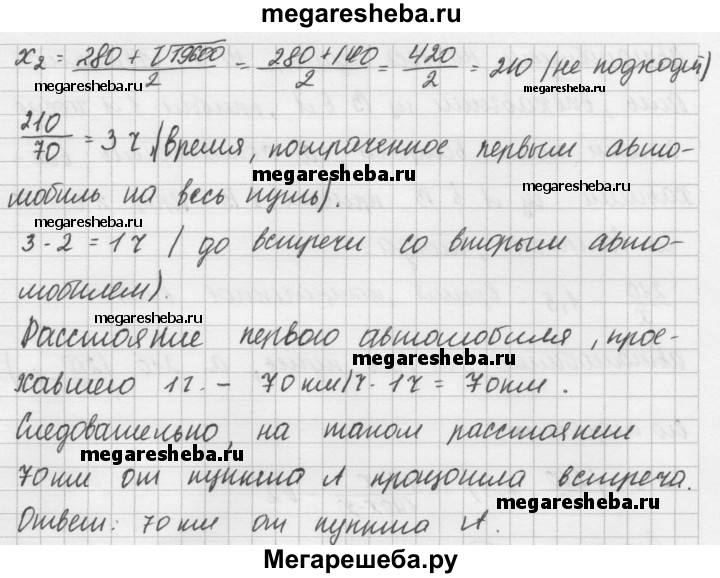 megaresheba.ru
x₂ = (280 + √19600)/2 = (280 + 140)/2 = 420/2 = 210 (не подходит)
megaresheba.ru megaresheba.ru
210/70 = 3 ч (время, потраченное первым авто-
megaresheba.ru megaresheba.ru
мобиль на весь путь).
megaresheba.ru
3 - 2 = 1 ч (до встречи со вторым авто-
мобилем).
megaresheba.ru
Расстояние первого автомобиля, прое-
megaresheba.ru
хавшего 1 ч. – 70 км/ч · 1 ч = 70 км.
Следовательно, на таком расстоянии
megaresheba.ru
70 км от пункта А произошла встреча.
megaresheba.ru
Ответ: 70 км от пункта А.
Мегарешеба.ру